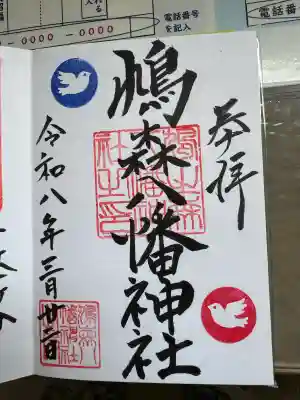 電話番号
を記入
電話番
奉拝
鳩森八幡神社
令和八年三月廿二日